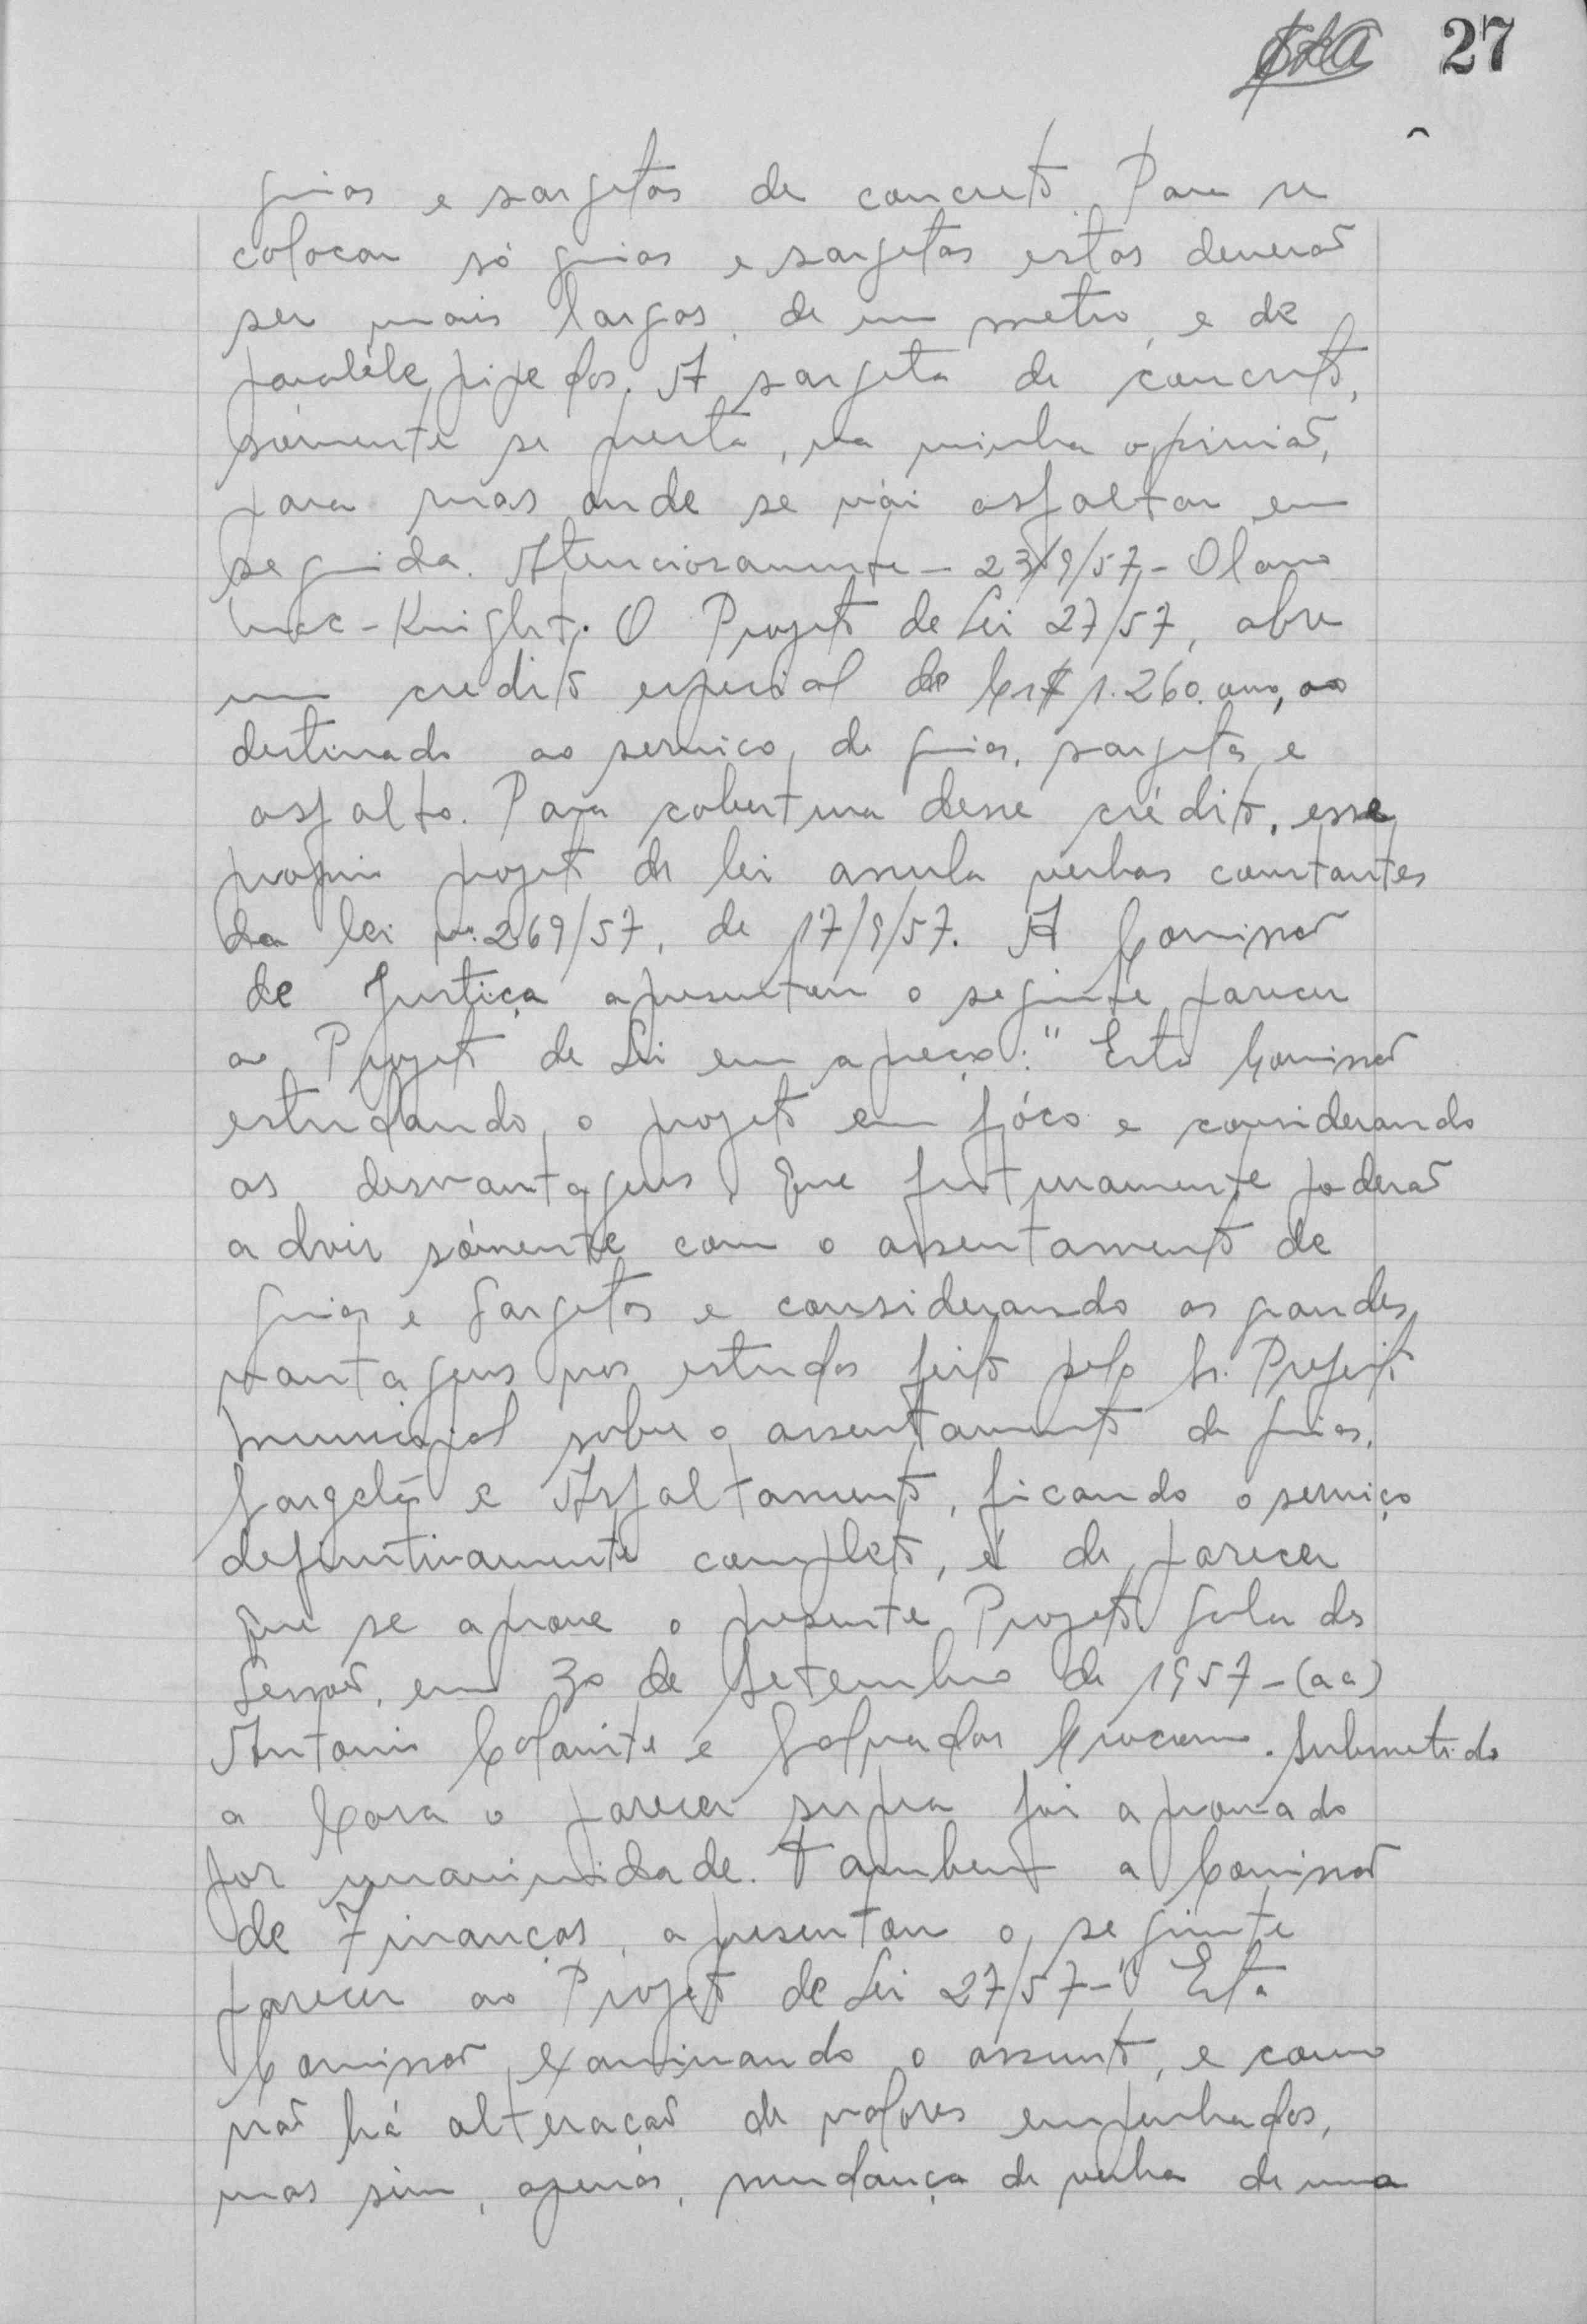 27
guias e sargetas de concreto. Para se
colocar só guias e sargetas estas deverão
ser mais largas, de um metro, e de
paralélepipedos. A sargeta de concreto,
sómente se presta, na minha opinião,
para ruas onde se vai asfaltar em
seguida. Atenciosamente - 23/9/57 - Olavo
Mac-Knight. O Projeto de Lei 27/57, abre
um credito especial de Cr$ 1.260.000,00
destinado ao serviço de guias, sargetas e
asfalto. Para cobertura desse crédito, esse
proprio projeto de lei anula verbas constantes
da lei nº 269/57, de 17/9/57. A Comissão
de Justiça apresentou o seguinte parecer
ao Projeto de Lei em apreço: "Esta Comissão
estudando o projeto em fóco e considerando
as desvantagens que futuramente poderão
advir sómente com o assentamento de
guias e Sargetas e considerando as grandes
vantagens nos estudos feito pelo Sr. Prefeito
municipal sobre o assentamento de guias,
Sargetas e Asfaltamento, ficando o serviço
definitivamente completo, é de parecer
que se aprove o presente Projeto. Sala das
Sessões, em 30 de Setembro de 1957 - (aa)
Antonio e Salvador. Submetido
a Casa o parecer supra foi aprovado
por unanimidade. Tambem a Comissão
de Finanças, apresentou o seguinte
parecer ao Projeto de Lei 27/57 - "Esta
Comissão examinando o assunto, e como
não há alteração de valores empenhados,
mas sim, apenas, mudança de verba de uma